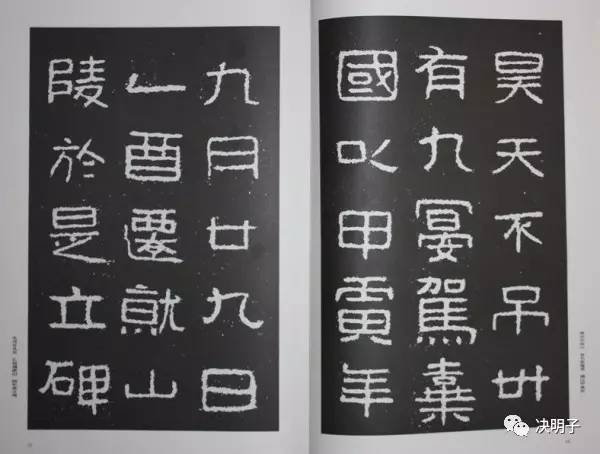 昊天不吊卅
有九宴駕棄
國以甲寅年
九月廿九日
乙酉遷就山
陵於是立碑
决明子